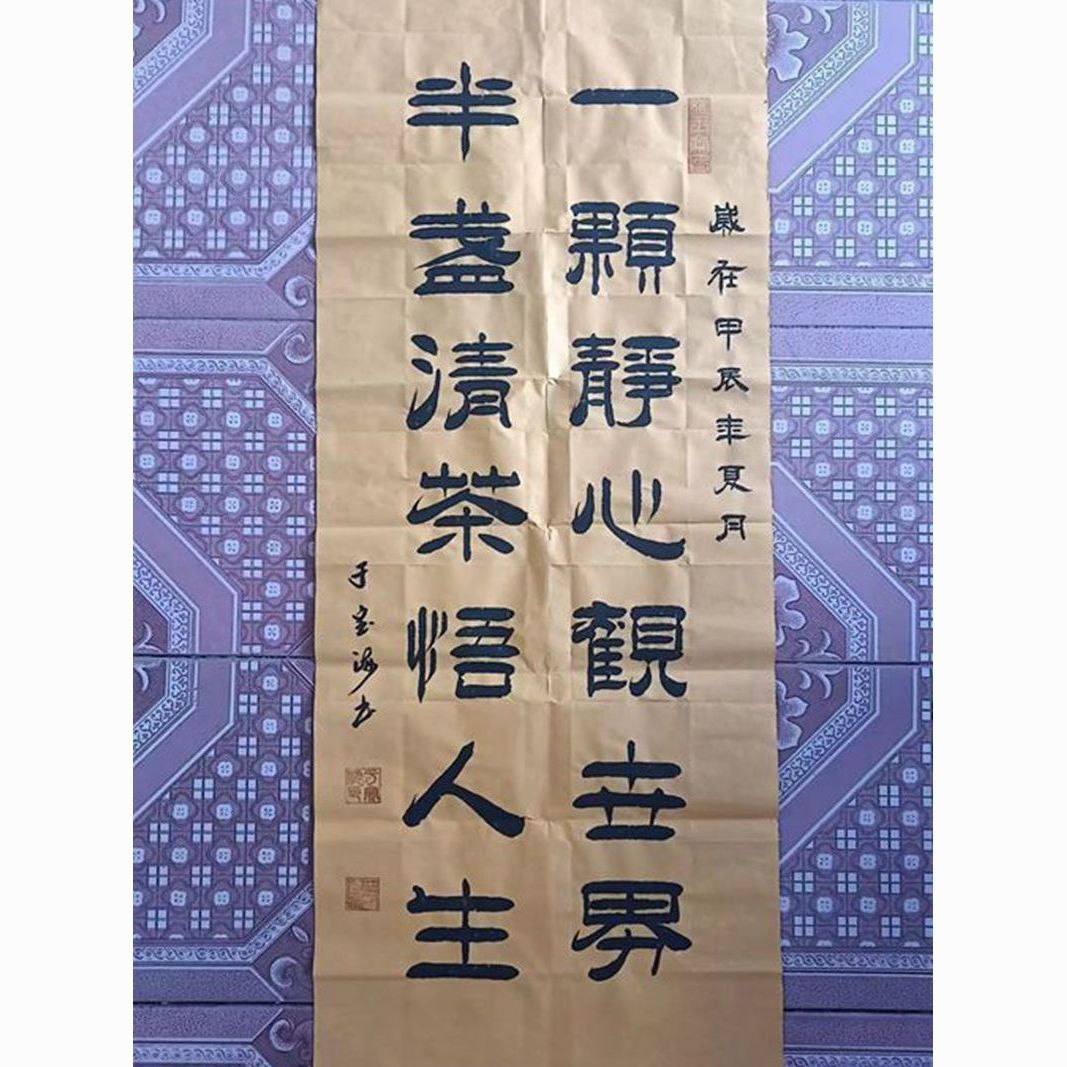 歲在甲辰年夏月
一顆靜心觀世界
半盞清茶悟人生
于宝海书